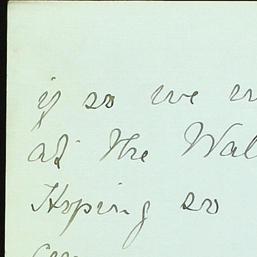 if so we
at the Wal
Hoping so